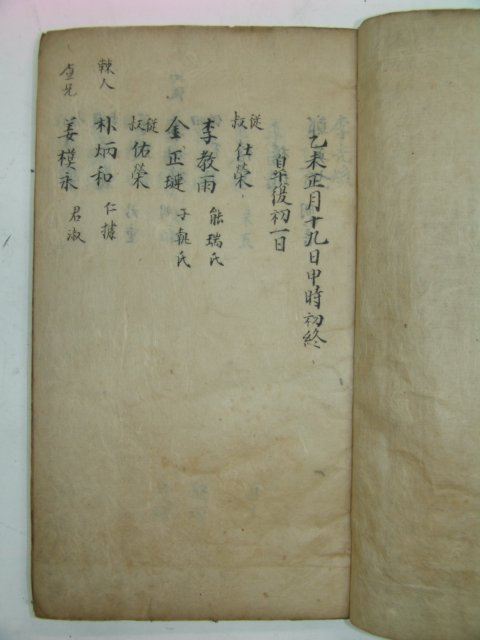 乙未正月十九日甲時初終
自午後初一日
從叔仕榮
李教雨 能瑞氏
金正璉 子範氏
從叔佑榮
棘人 朴炳和 仁據
査兄 姜模永 君淑